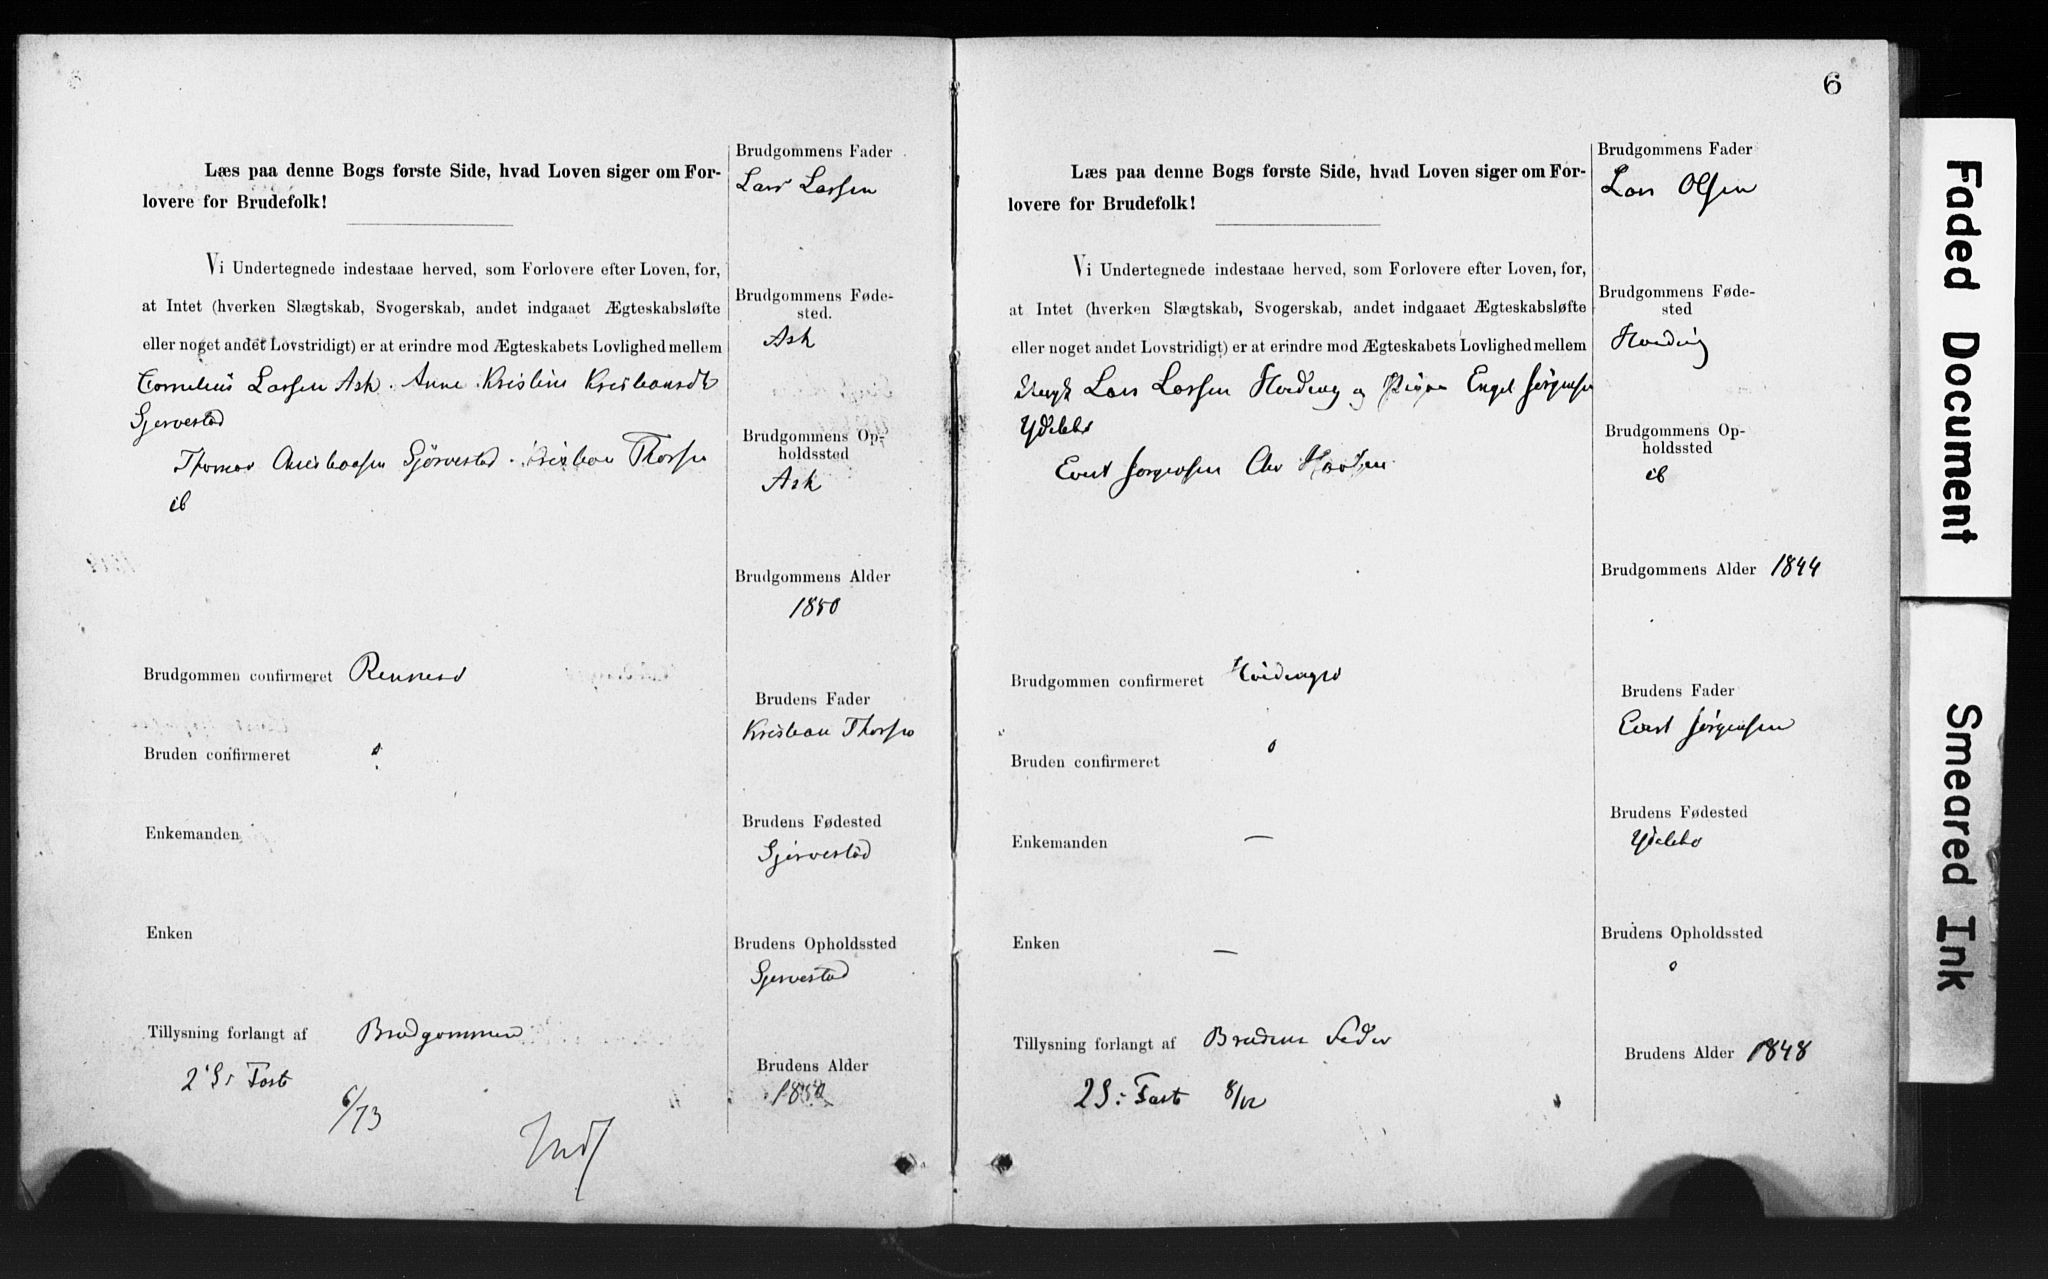 Læs paa denne Bogs første Side, hvad Loven siger om For-
lovere for Brudefolk!
Vi Undertegnede indestaae herved, som Forlovere efter Loven, for,
at Intet (hverken Slægtskab, Svogerskab, andet indgaaet Ægteskabsløfte
eller noget andet Lovstridigt) er at erindre mod Ægteskabets Lovlighed mellem
Cornelius Larsen Ask. Anne Kristine Kristiansdt
Sjervestad
Thomas Christiansen Sjørvestad. Kristian Thorsen
ib
Brudgommen confirmeret Rennesø
Bruden confirmeret o
Enkemanden
Enken
Tillysning forlangt af Brudgommen
2 S: Fast
6/73
Indf
Brudgommens Fader
Lars Larsen
Brudgommens Føde-
sted.
Ask
Brudgommens Op-
holdssted
Ask
Brudgommens Alder
1850
Brudens Fader
Kristian Thorsen
Brudens Fødested
Sjørvestad
Brudens Opholdssted
Sjervestad
Brudens Alder
1850
6
Læs paa denne Bogs første Side, hvad Loven siger om For-
lovere for Brudefolk!
Vi Undertegnede indestaae herved, som Forlovere efter Loven, for,
at Intet (hverken Slægtskab, Svogerskab, andet indgaaet Ægteskabsløfte
eller noget andet Lovstridigt) er at erindre mod Ægteskabets Lovlighed mellem
Lars Larsen Hviding og Pigen Engel Jørgensen
Ydstebø
Evert Jørgensen
Brudgommen confirmeret Hvidingsø
Bruden confirmeret o
Enkemanden —
Enken —
Tillysning forlangt af Brudens Fader
2 S: Fast 8/12
Brudgommens Fader
Lars Olsen
Brudgommens Føde-
sted
Hviding
Brudgommens Op-
holdssted
ib
Brudgommens Alder 1844
Brudens Fader
Evert Jørgensen
Brudens Fødested
Ydstebø
Brudens Opholdssted
o
Brudens Alder 1848
Faded Document
Smeared Ink